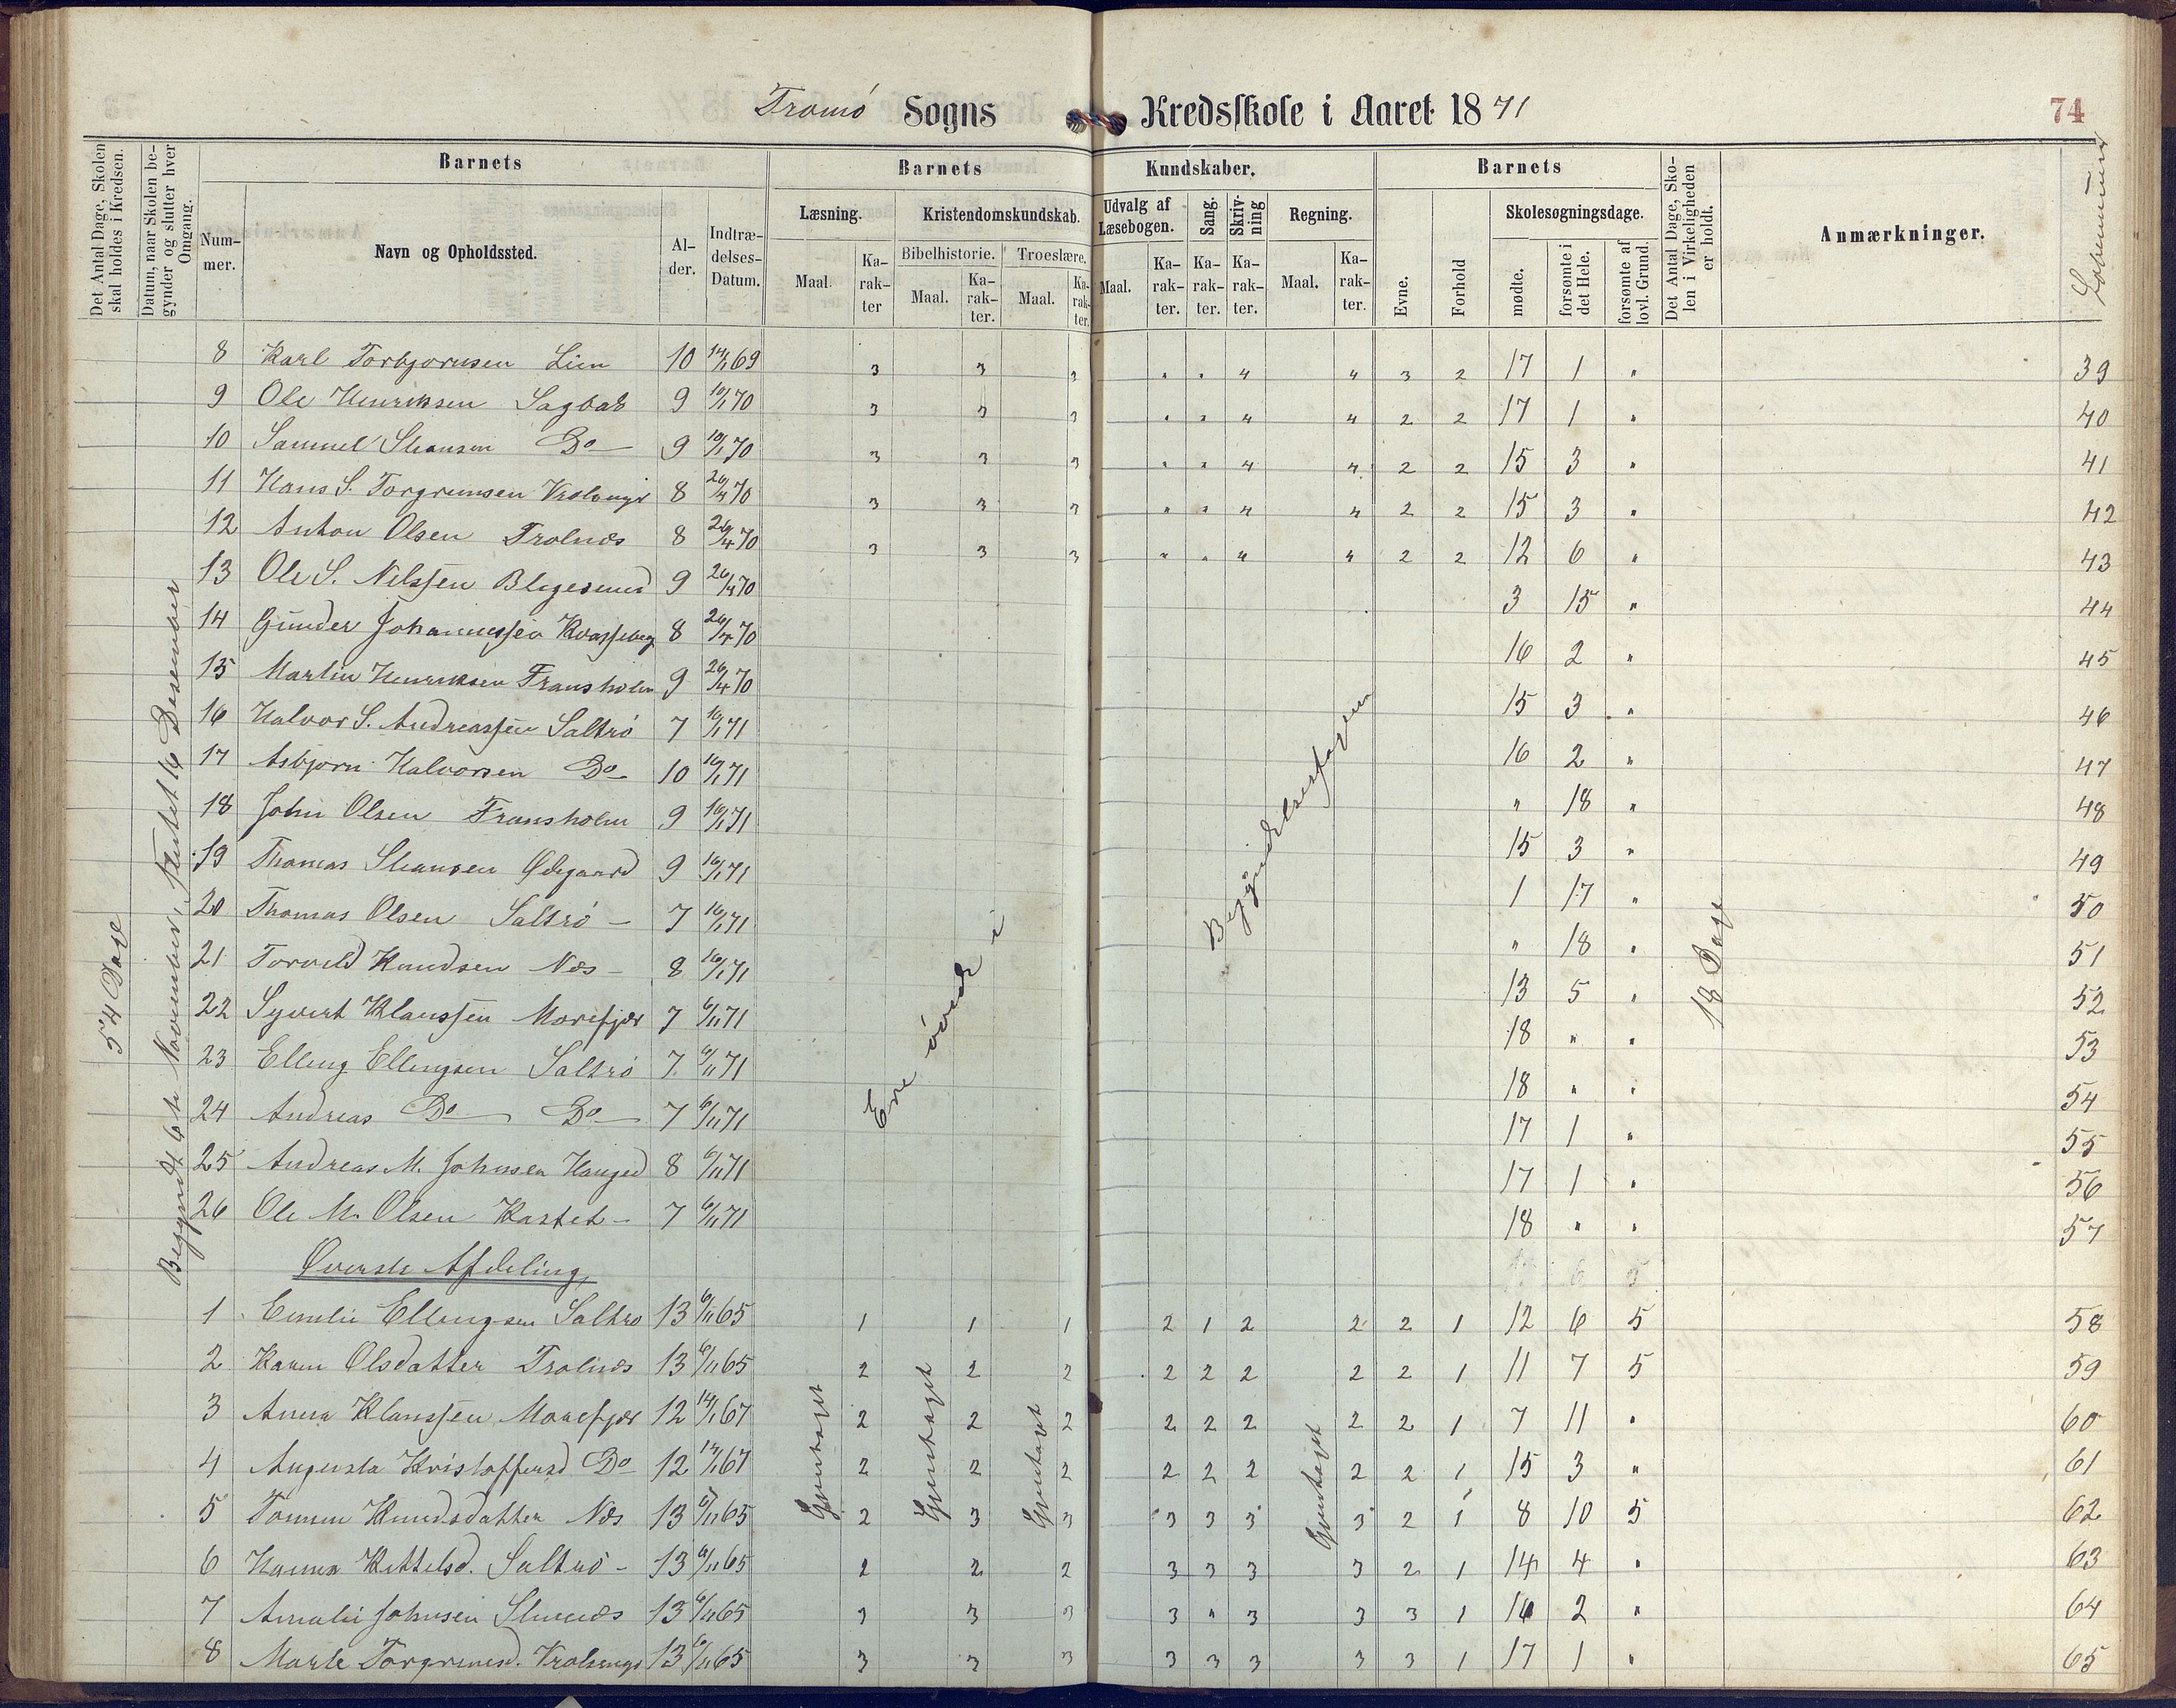 Tromø Sogns Kredsskole i Aaret 1871
74
Det Antal Dage, Skolen skal holdes i Kredsen.
Datum, naar Skolen begynder og slutter hver Omgang.
Barnets
Nummer.
Navn og Opholdssted.
Alder.
Indtrædelses-Datum.
Barnets Kundskaber.
Læsning.
Maal.
Karakter
Kristendomskundskab.
Bibelhistorie.
Maal.
Karakter.
Troeslære.
Maal.
Karakter.
Udvalg af Læsebogen.
Maal.
Karakter.
Sang.
Karakter.
Skrivning
Karakter.
Regning.
Maal.
Karakter.
Barnets
Evne.
Forhold
Skolesøgningsdage.
mødte.
forsømte i det Hele.
forsømte af lovl. Grund.
Det Antal Dage, Skolen i Virkeligheden er holdt.
Anmærkninger.
Løbenumer
54 Dage
Begyndt 6te November, sluttet 16 Desember
18 Dage
8 Karl Torbjornsen Lien 10 14/1 69 3 3 3 " " 4 4 3 2 17 1 " 39
9 Ole Henriksen Sagbak 9 10/1 70 3 3 3 " " 4 4 2 2 17 1 " 40
10 Samuel Do 9 10/1 70 3 3 3 " " 4 4 2 2 15 3 " 41
11 Hans S. Torgrimsen 8 26/4 70 3 3 3 " " 4 4 2 2 15 3 " 42
12 Anton Olsen Trolnæs 8 26/4 70 3 3 3 " " 4 4 2 2 12 6 " 43
13 Ole S. Nilssen 9 26/4 70 3 15 " 44
14 Gunder Johannessen 8 26/4 70 16 2 " 45
15 Martin Henriksen Fransholm 9 26/4 70 15 3 " 46
16 Halvor S. Andreassen Saltrø 7 16/1 71 16 2 " 47
17 Asbjorn Halvorsen Do 10 16/1 71 " 18 " 48
18 John Olsen Fransholm 9 16/1 71 15 3 " 49
19 Thomas Ødegaard 9 16/1 71 1 17 " 50
20 Thomas Olsen Saltrø 7 16/1 71 " 18 " 51
21 Torvald Knudsen Næs 8 16/1 71 13 5 " 52
22 Syvert Klaussen Morefjær 7 6/11 71 18 " " 53
23 Elling Ellingsen Saltrø 7 6/11 71 18 " " 54
24 Andreas Do Do 7 6/11 71 17 1 " 55
25 Andreas M. Johnsen 8 6/11 71 17 1 " 56
26 Ole M. Olsen Kastet 7 6/11 71 18 " " 57
Ere øvede i Begyndelsesfagene
Øverste Afdeling
1 Emelie Ellingsen Saltrø 13 6/11 65 1 1 1 2 1 2 2 2 1 12 6 5 58
2 Karen Olsdatter Trolnæs 13 6/11 65 2 2 2 2 2 2 2 2 1 11 7 5 59
3 Anna Klaussen Morefjær 12 14/1 67 2 2 2 2 2 2 2 2 1 7 11 " 60
4 Augusta Kristoffersd Do 12 14/1 67 2 2 2 2 2 2 2 2 1 15 3 " 61
5 Knudsdatter Næs 13 6/11 65 2 3 3 3 3 3 3 2 1 8 10 5 62
6 Hanna Kittelsd. Saltrø 13 6/11 65 2 2 2 3 3 3 3 2 1 14 4 " 63
7 Amalie Johnsen 13 6/11 65 3 3 3 3 " 3 3 3 1 16 2 " 64
8 Marte Torgrimsd. 13 6/11 65 3 3 3 3 3 3 3 3 1 17 1 " 65
Gjentaget
Gjentaget
Gjentaget
Gjentaget